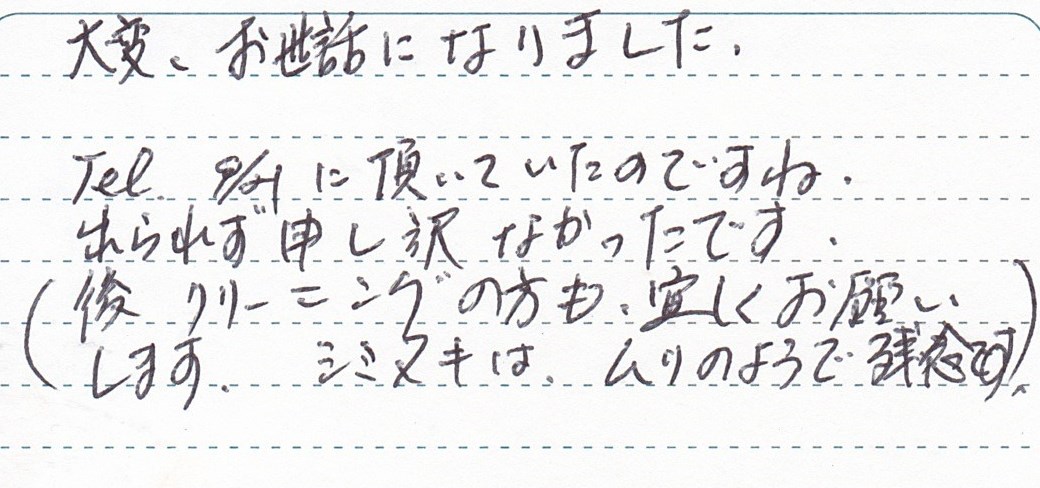 大変、お世話になりました.
Tel. に頂いていたのですね.
出られず申し訳なかったです.
(後 クリーニングの方も、宜しくお願い
します. シミヌキは、ムリのようで残念です.)